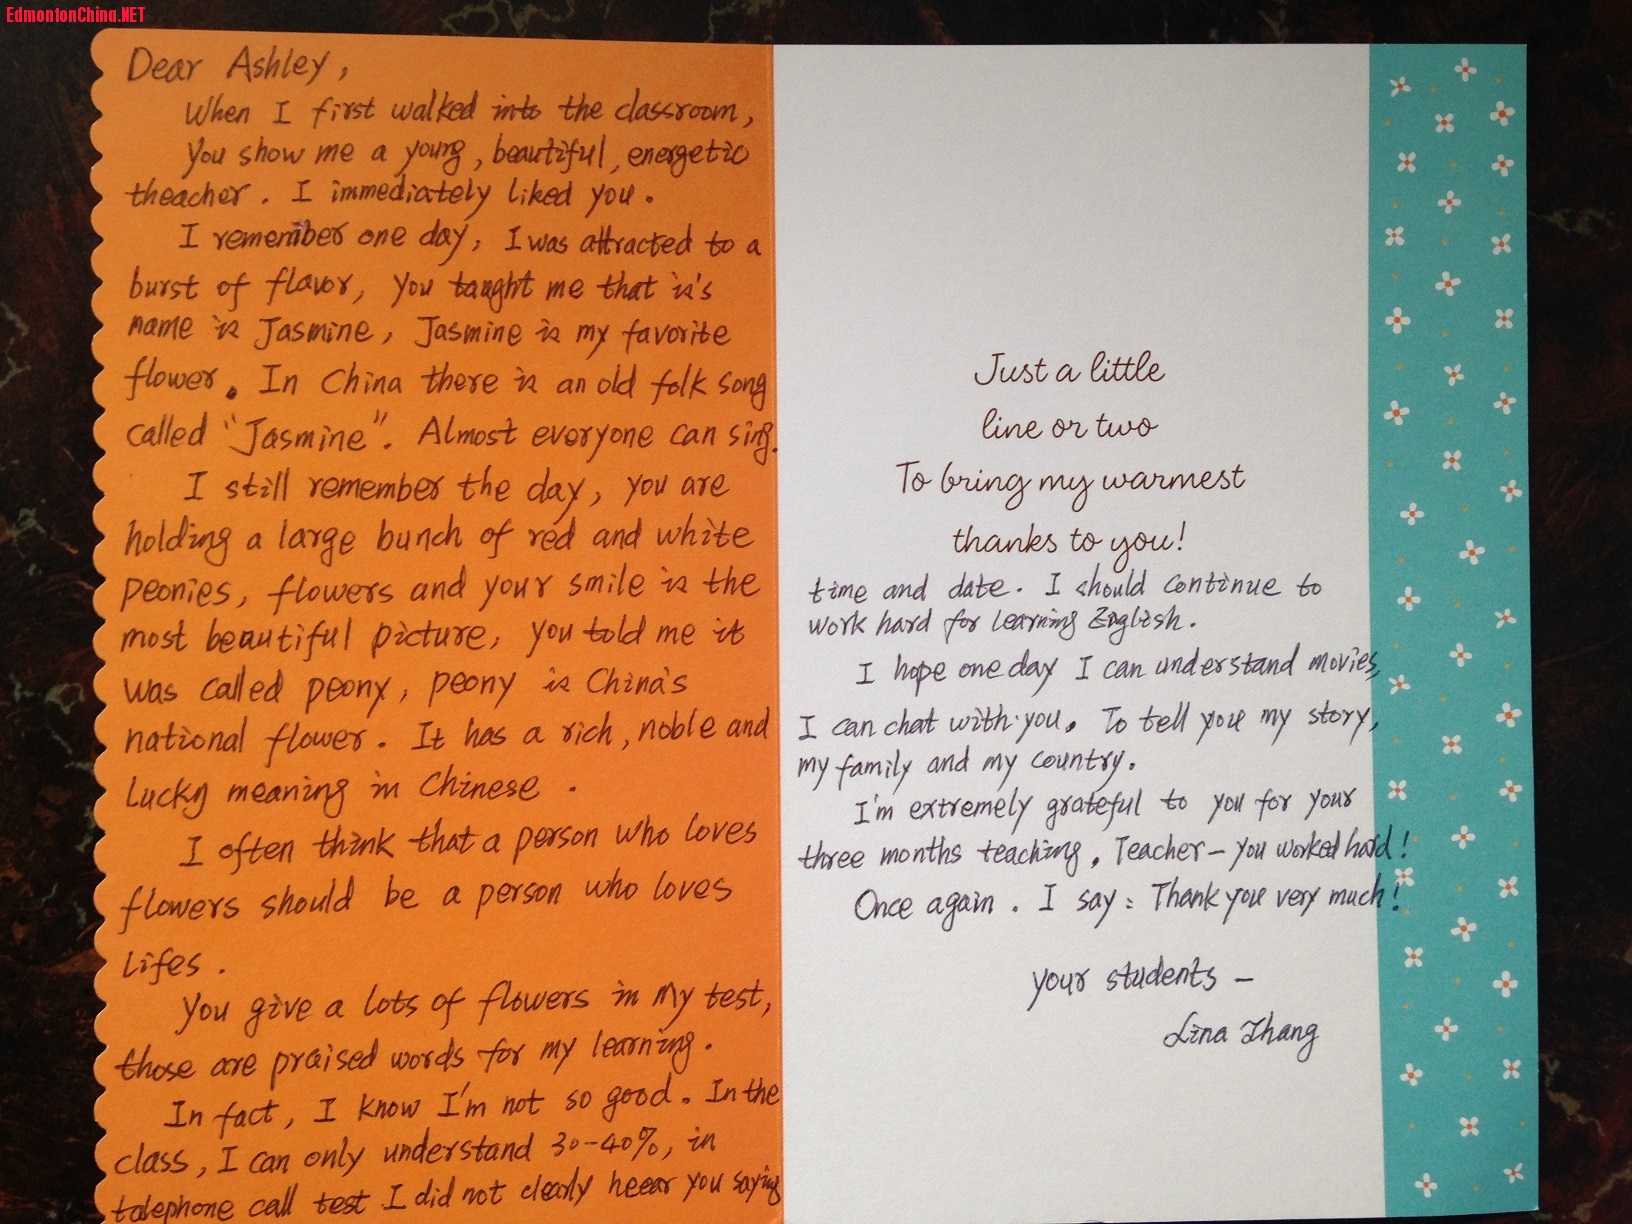 EdmontonChina.NET
Dear Ashley,
When I first walked into the classroom,
you show me a young, beautiful, energetic
theacher. I immediately liked you.
I remember one day, I was attracted to a
burst of flavor, you taught me that is's
name is Jasmine, Jasmine is my favorite
flower. In China there is an old folk song
called "Jasmine". Almost everyone can sing.
I still remember the day, you are
holding a large bunch of red and white
peonies, flowers and your smile is the
most beautiful picture, you told me it
was called peony, peony is China's
national flower. It has a rich, noble and
Lucky meaning in Chinese.
I often think that a person who loves
flowers should be a person who loves
lifes.
You give a lots of flowers in my test,
those are praised words for my learning.
In fact, I know I'm not so good. In the
class, I can only understand 30-40%, in
telephone call test I did not clearly heear you saying
Just a little
line or two
To bring my warmest
thanks to you!
time and date. I should continue to
work hard for learning English.
I hope one day I can understand movies,
I can chat with you. To tell you my story,
my family and my country.
I'm extremely grateful to you for your
three months teaching. Teacher – you worked hard!
Once again. I say: Thank you very much!
your students –
Lina Zhang